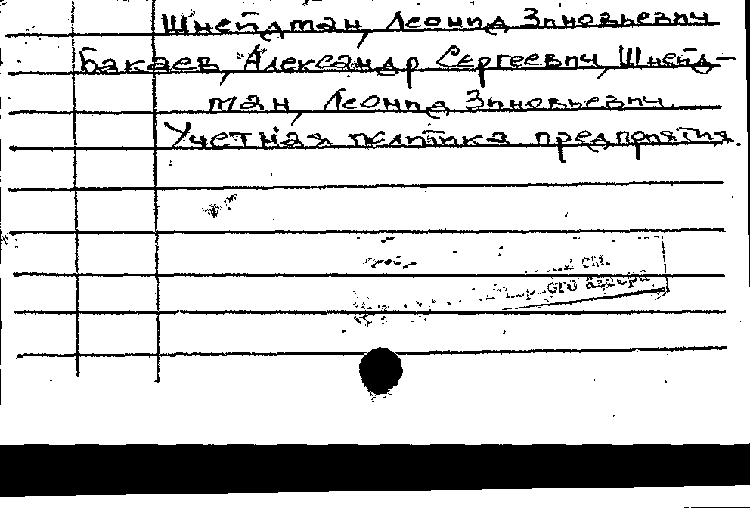 Шнейдман, Леонид Зиновьевич
Бакаев, Александр Сергеевич, Шнейд-
ман, Леонид Зиновьевич.
Учетная политика предприятия.
см.
автора